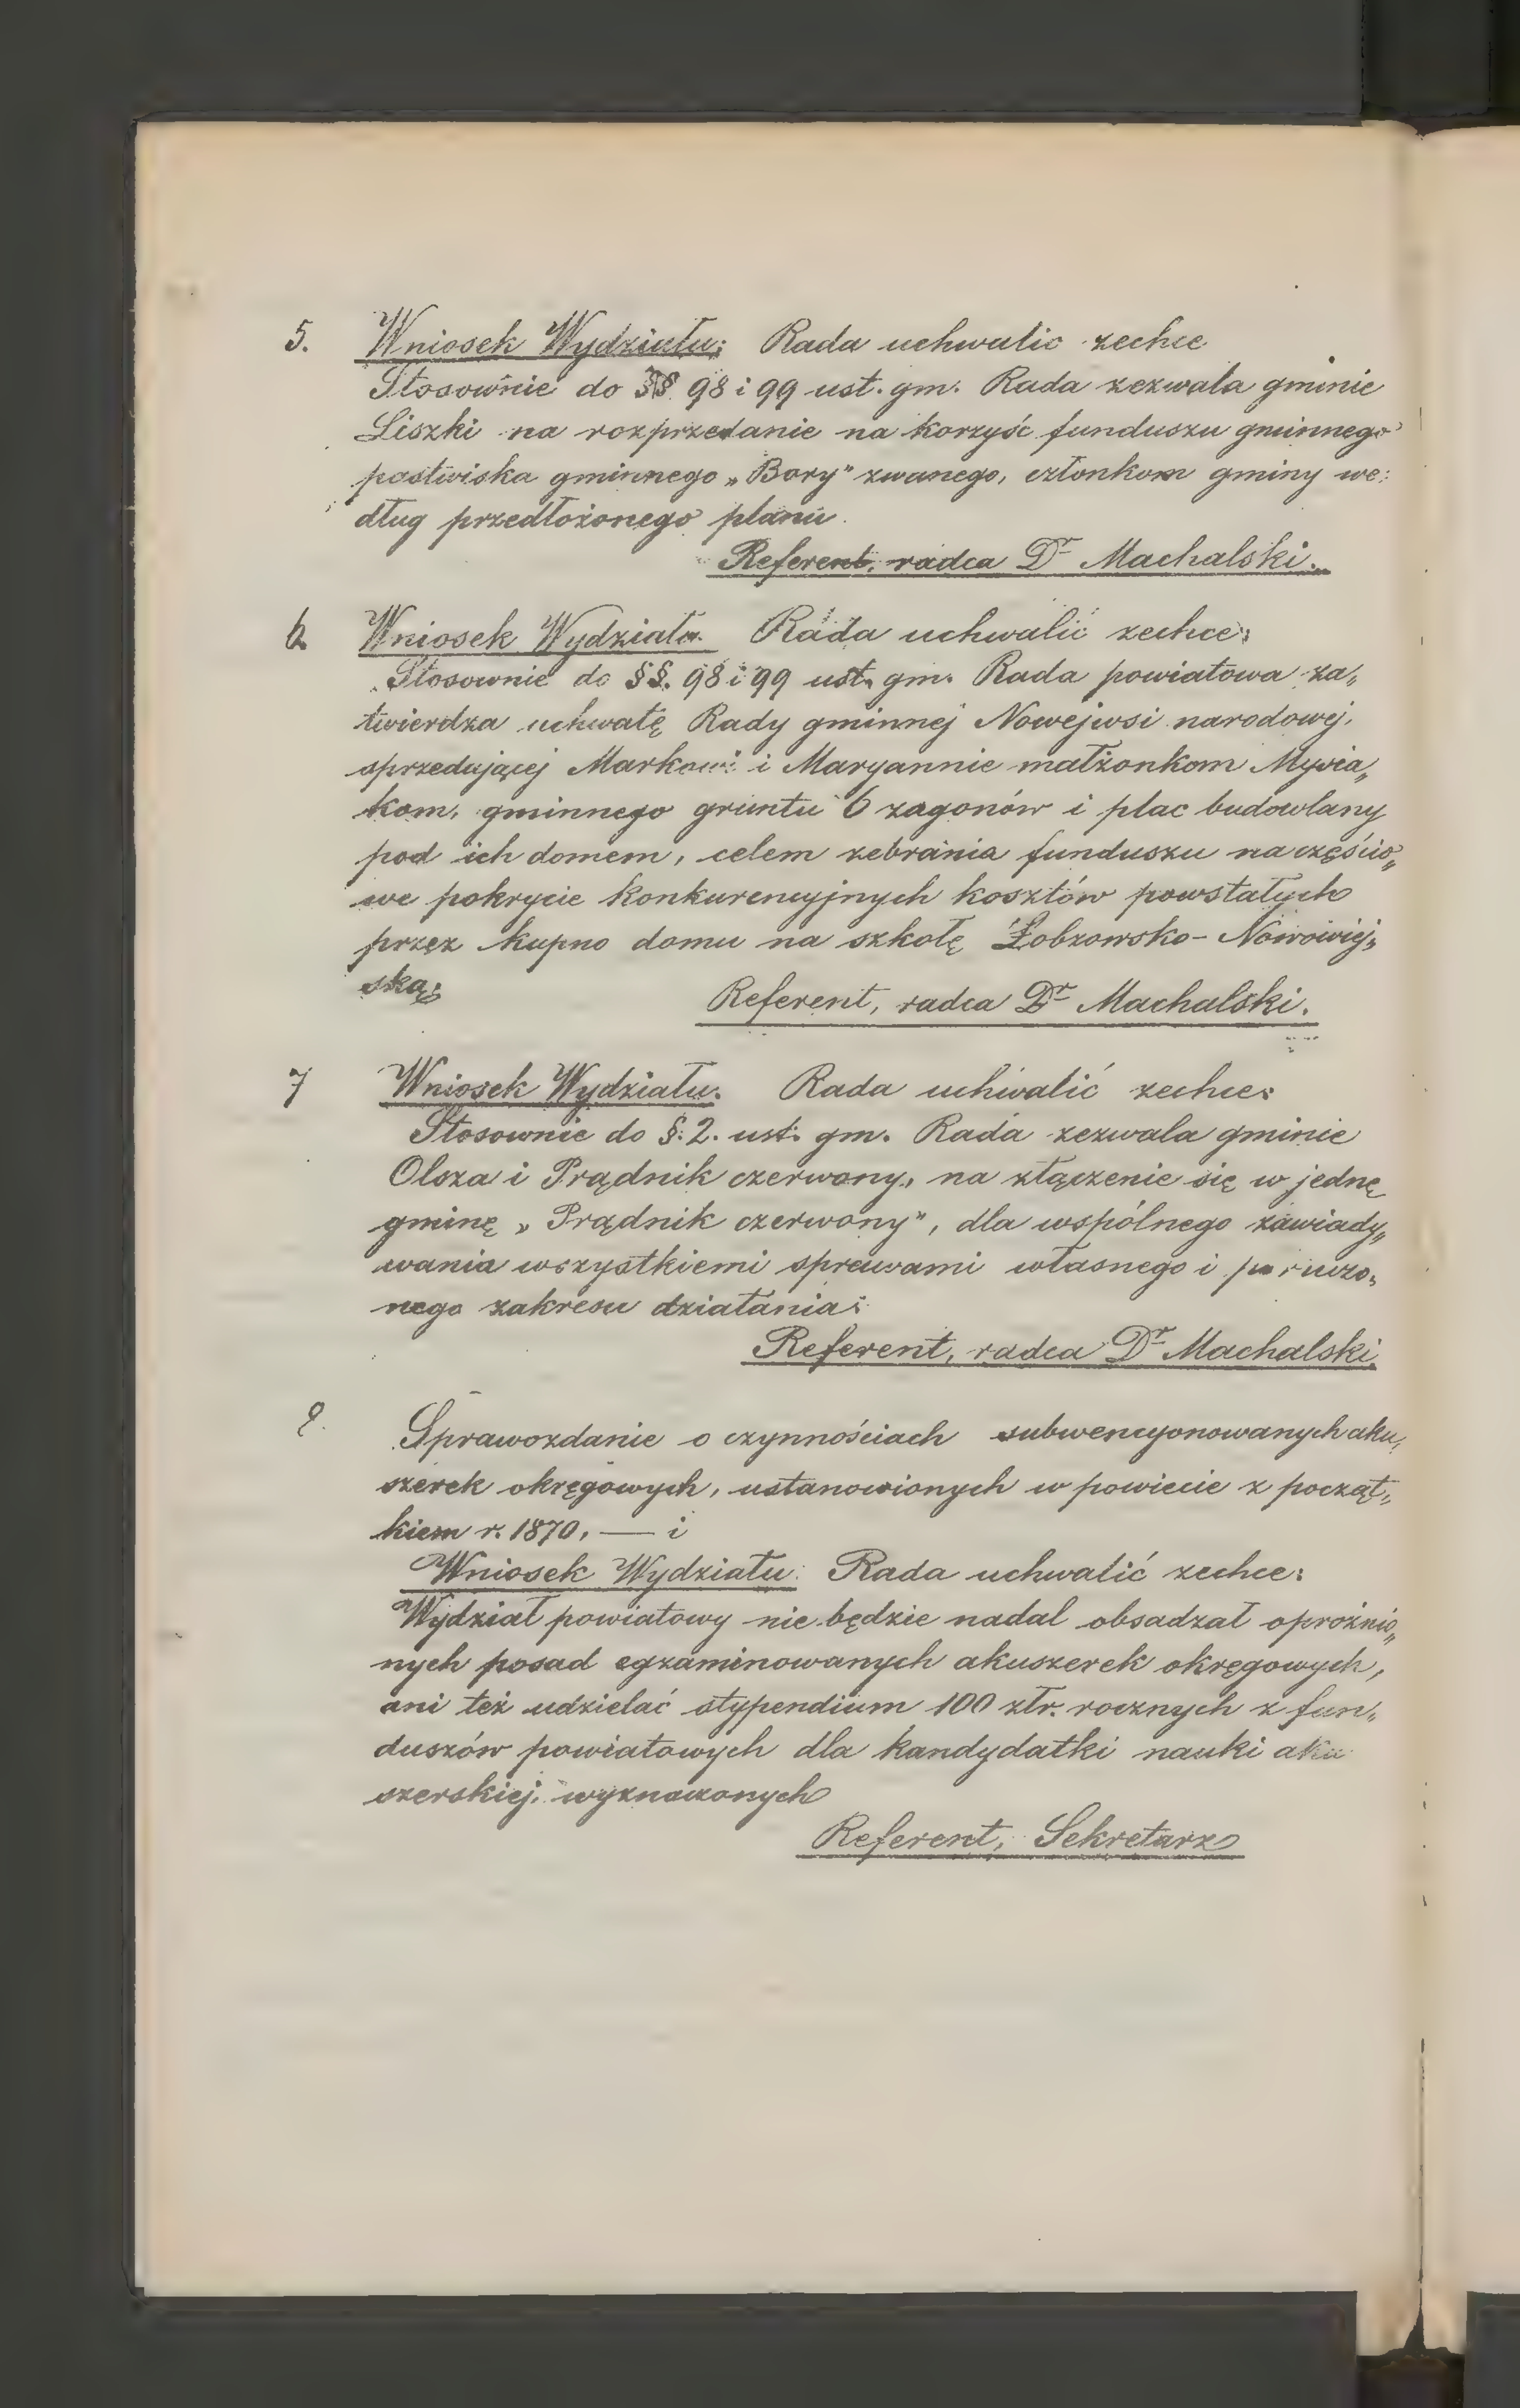 5. Wniosek Wydziału: Rada uchwalic zechce
Stosownie do §§ 98 i 99 ust. gm. Rada zezwala gminie
Liszki na rozprzedanie na korzyść funduszu gminnego
pastwiska gminnego „Bory" zwanego, członkom gminy we:
dług przedłożonego planu.
Referent, radca Dr Machalski.
6. Wniosek Wydziału. Rada uchwalić zechce:
Stosownie do §§. 98 i 99 ust. gm. Rada powiatowa za„
twierdza uchwałę Rady gminnej Nowejwsi narodowej,
sprzedającej Markowi i Maryannie małżonkom
kom, gminnego gruntu 6 zagonów i plac budowlany
pod ich domem, celem zebrania funduszu na częścio„
we pokrycie konkurencyjnych kosztów powstałych
przez kupno domu na szkołę Łobzowsko-Nowowiej„
ską:
Referent, radca Dr Machalski.
7 Wniosek Wydziału. Rada uchwalić zechce:
Stosownie do §. 2. ust. gm. Rada zezwala gminie
Olsza i Prądnik czerwony, na złączenie się w jednę
gminę „Prądnik czerwony", dla wspólnego zawiady„
wania wszystkiemi sprawami własnego i poruczo„
nego zakresu działania:
Referent, radca Dr Machalski.
8. Sprawozdanie o czynnościach subwencyonowanych aku„
szerek okręgowych, ustanowionych w powiecie z począt„
kiem r. 1870, — i
Wniosek Wydziału: Rada uchwalić zechce:
Wydział powiatowy nie będzie nadal obsadzał opróżnio„
nych posad egzaminowanych akuszerek okręgowych,
ani też udzielać stypendium 100 złr. rocznych z fun„
duszów powiatowych dla kandydatki nauki aku
szerskiej, wyznaczonych
Referent, Sekretarz